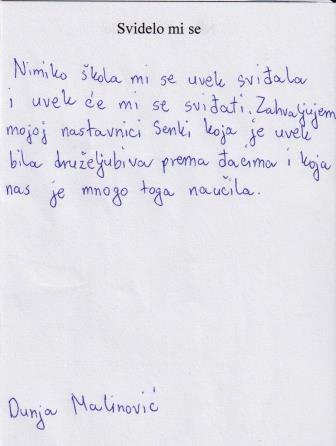 Svidelo mi se
Nimiko škola mi se uvek sviđala
i uvek će mi se sviđati. Zahvaljujem
mojoj nastavnici Senki koja je uvek
bila druželjubiva prema đacima i koja
nas je mnogo toga naučila.
Dunja Malinović